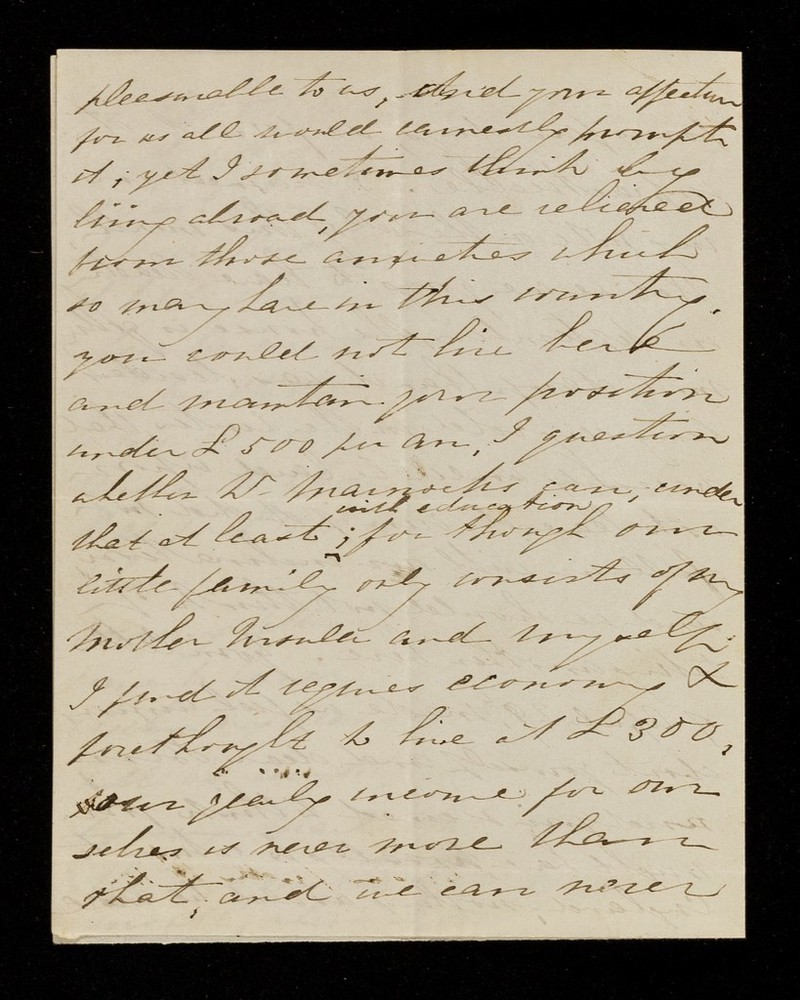 pleasurable to us, and your affection
for us all would earnestly prompt
it; yet I sometimes think by
living abroad, you are relieved
from those anxieties which
so many have in this country.
you could not live here
and maintain your position
under £500 per an, I question
whether W. can, under
with education
that at least; for though our
little family only consists of my
Mother Ursula and myself;
I find it requires economy &
forethought to live at £300,
our yearly income for our
selves is never more than
that, and we can never